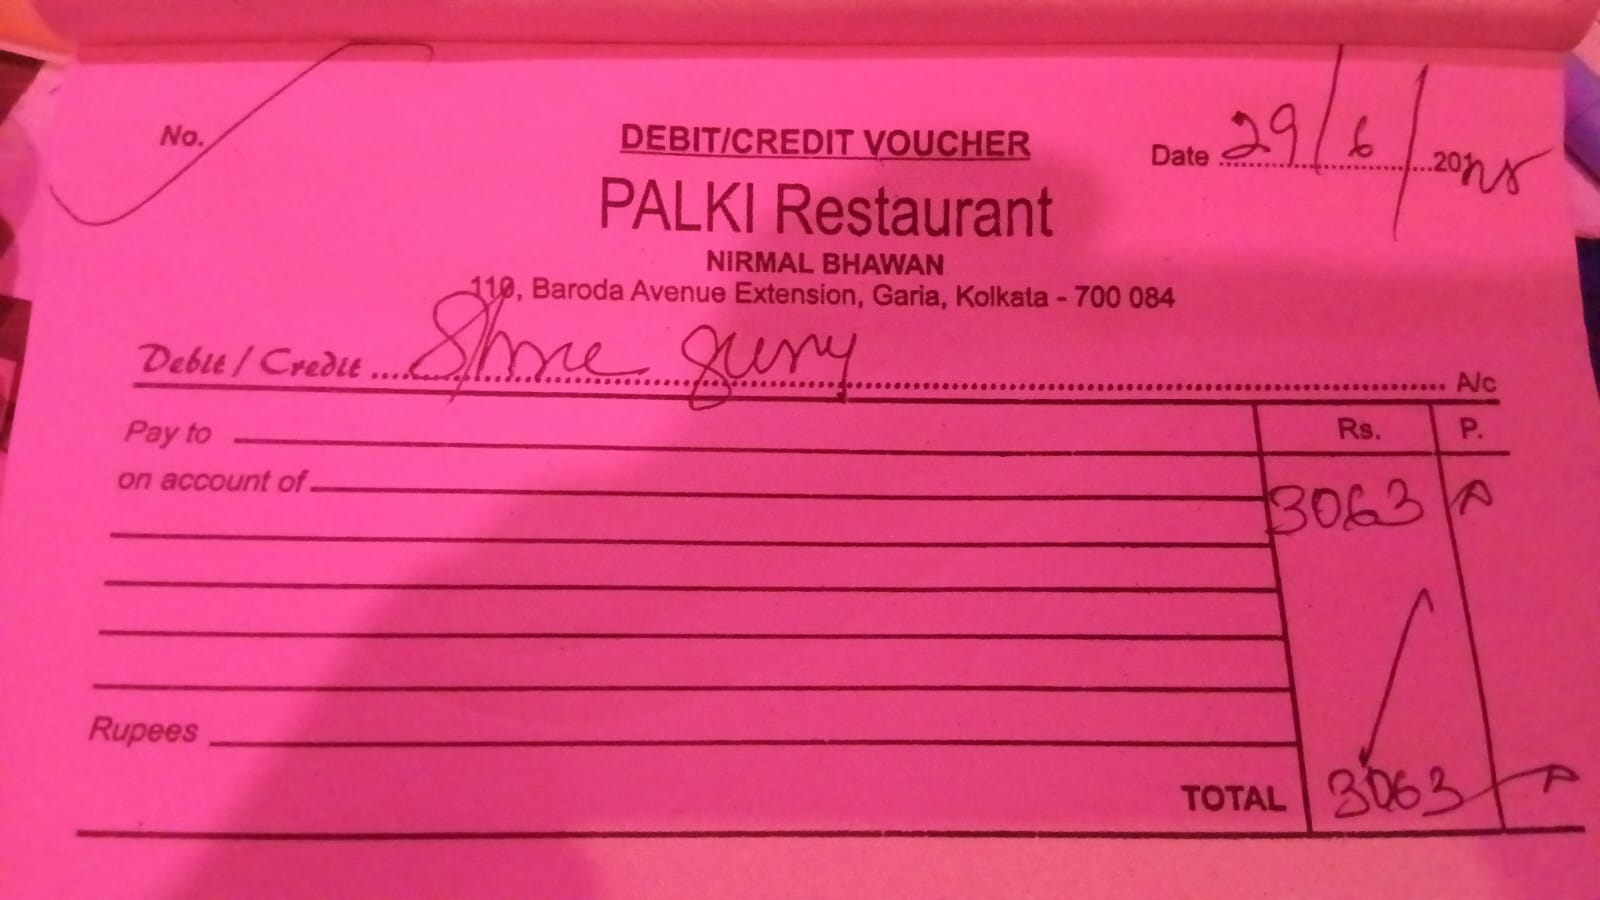 No.
DEBIT/CREDIT VOUCHER
Date 29/6/2025
PALKI Restaurant
NIRMAL BHAWAN
110, Baroda Avenue Extension, Garia, Kolkata - 700 084
Debit / Credit Shree A/c
Pay to
Rs. P.
on account of
3063
Rupees
TOTAL 3063